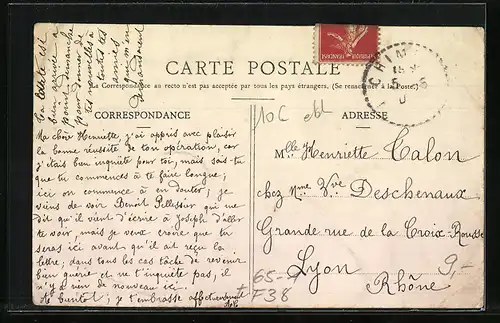 CARTE POSTALE
La Correspondance au recto n'est pas acceptée par tous les pays étrangers. (Se renseigner à la Poste.)
CORRESPONDANCE
ADRESSE
ta carte est
bien arrivée
pour dimanche
pour donner de
tes nouvelles à
toutes tes
amies
Ma chère Henriette, j'ai appris avec plaisir
la bonne réussite de ton opération, car
j'étais bien inquiète pour toi, mais sais-tu
que tu commences à te faire longue;
ici on commence à en douter; je
viens de voir Benoit Pellissier qui me
dit qu'il vient d'écrire à Joseph d'aller
te voir, mais je veux croire que tu
seras ici avant qu'il ait reçu la
lettre; dans tous les cas tâche de revenir
bien guérie et ne t'inquiète pas, il
n'y a rien de nouveau ici.
A bientôt; je t'embrasse affectueusement
Mlle Henriette Calon
chez Mme Vve Deschenaux
Grande rue de la Croix-Rousse
Lyon
Rhône
10C
65-
F38
9,-